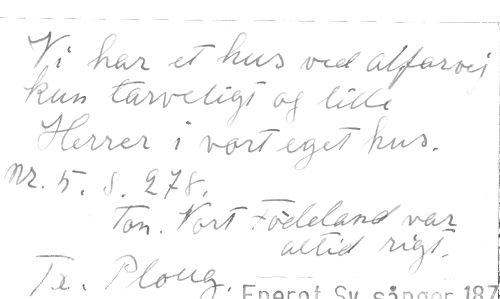 Vi har et hus ved alfarvej
kun tarveligt og lille
Herrer i vort eget hus.
nr. 5. S. 278.
Ton. Vort Fødeland var
altid rigt.
Te. Ploug.
Enerot Sv sånger 187